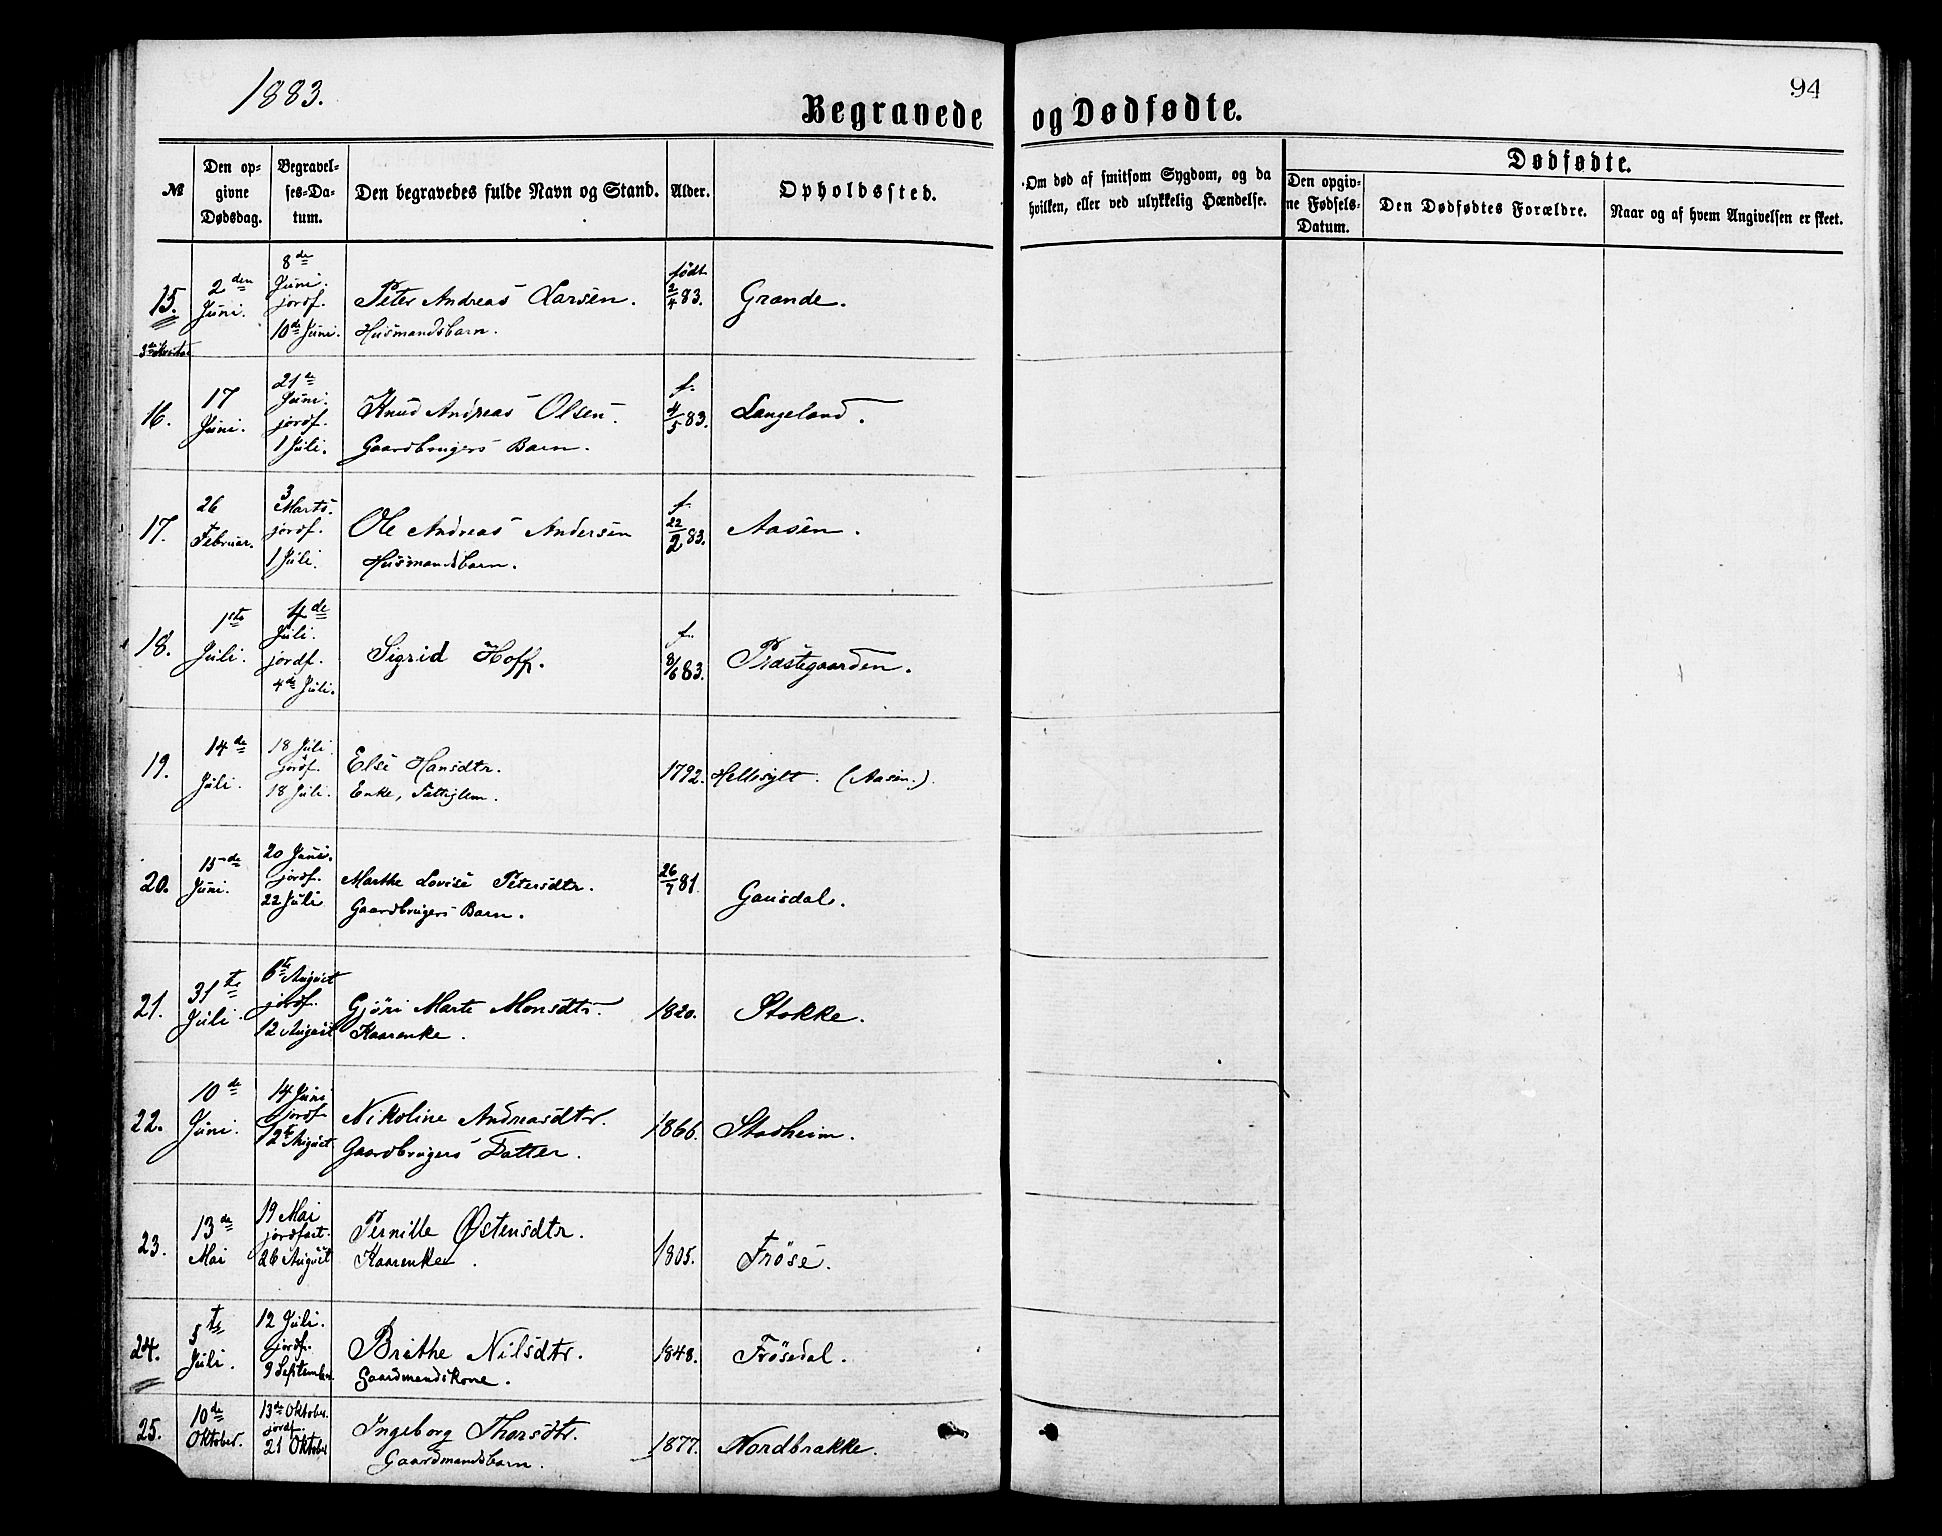 1883.
94
Begravede og Dødfødte.
№
Den opgivne Dødsdag.
Begravelses-Datum.
Den begravedes fulde Navn og Stand.
Alder.
Opholdssted.
Om død af smitsom Sygdom, og da hvilken, eller ved ulykkelig Hændelse.
Dødfødte.
Den opgivne Fødsels-Datum.
Den Dødfødtes Forældre.
Naar og af hvem Angivelsen er skeet.
15. 2den Juni. 8de Juni. jordf. 10de Juni. Peter Andreas Larsen. født 2/4 83. Grande.
Husmandsbarn.
16. 17 Juni. 21de Juni. jordf. 1 Juli. Knud Andreas Olsen. f. 4/5 83. Langeland.
Gaardbrugers Barn.
17. 26 Februar. 3 Marts. jordf. 1 Juli. Ole Andreas Andersen f. 22/2 83. Aasen.
Husmandsbarn.
18. 1ste Juli. 4de Juli. jordf. 4de Juli. Sigrid Hoff. f. 8/6 83. Præstegaarden.
19. 14de Juli. 18 Juli. jordf. 18 Juli. Else Hansdtr. 1792. Hellesylt. (Aasen.).
Enke, Fattiglem.
20. 15de Juni. 20 Juni. jordf. 22 Juli Marthe Lovise Petersdtr. 26/7 81. Gausdal.
Gaardbrugers Barn.
21. 31te Juli. 6te August jordf. 12 August Gjøri Marte Monsdtr. 1820. Stokke.
Kaarenke.
22. 10de Juni. 14 Juni jordf 12te August Nikoline Andreasdtr. 1866. Stadheim.
Gaardbrugers Datter.
23. 13de Mai 19 Mai jordfæst. 26 August Pernille Østensdtr. 1805. Frøse.
Kaarenke.
24. 5te Juli. 12 Juli. jordf. 9 September Brithe Nilsdtr. 1848. Frøsedal.
Gaardmandskone.
25. 10de Oktober. 13de Oktober. jordf. 21 Oktober Ingeborg Thorsdtr. 1877. Nordbrække.
Gaardmandsbarn.